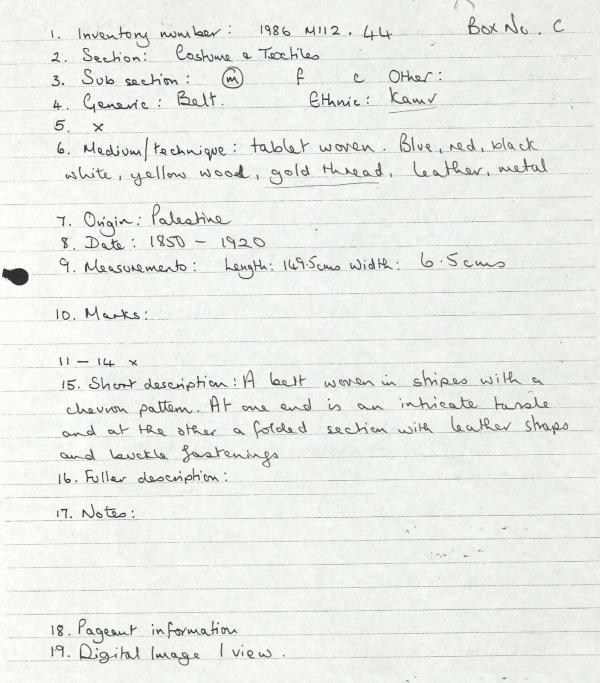 1. Inventory number: 1986 M112.44 Box No. C
2. Section: Costume & Textiles
3. Sub section: m f c Other:
4. Generic: Belt. Ethnic: Kamr
5. x
6. Medium/technique: tablet woven. Blue, red, black
white, yellow wood, gold thread, leather, metal
7. Origin: Palestine
8. Date: 1850 - 1920
9. Measurements: Length: 149.5cms Width: 6.5cms
10. Marks:
11 - 14 x
15. Short description: A belt woven in stripes with a
chevron pattern. At one end is an intricate tassle
and at the other a folded section with leather straps
and buckle fastenings
16. Fuller description:
17. Notes:
18. Pageant information
19. Digital Image 1 view.